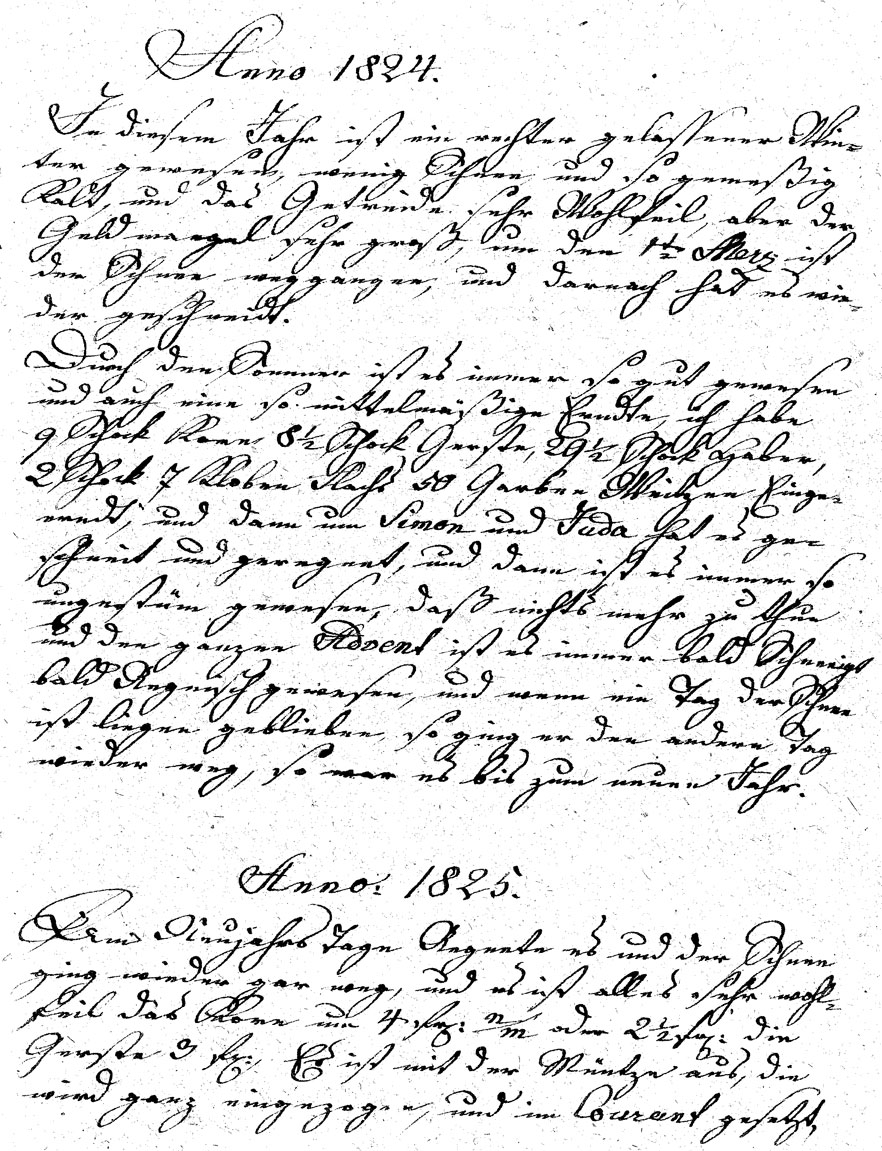 Anno 1824.
In diesem Jahr ist ein rechter gelassener Win-
ter gewesen, wenig Schnee und so gemeßig
Kalt, und das Getreide sehr Wohlfeil, aber der
Geld mangel sehr groß, um den 1te Merz ist
der Schnee weggangen, und darnach hat es wie-
der geschneidt.
Durch den Sommer ist es immer so gut gewesen
und auch eine so mittelmäßige Erndte, ich habe
9 Schock Korn, 8½ Schock Gerste, 29½ Schock Haber,
2 Schock 7 Kloben Flachs 50 Garben Weitzen Einge-
erndt, und dann um Simon und Juda hat es ge-
schneit und geregnet, und dann ist es immer so
ungestüm gewesen, daß nichts mehr zu thun
und den ganzen Advent ist es immer bald Schneeigt
bald Regnisch gewesen, und wenn ein Tag der Schnee
ist liegen geblieben, so ging er den andern Tag
wieder weg, so war es bis zum neuen Jahr.
Anno: 1825.
Am Neujahrs Tage Regnete es und der Schnee
ging wieder gar weg, und es ist alles sehr wohl-
feil das Korn um 4 oder 2½ die
Gerste 3 Es ist mit der Müntze aus, die
wird ganz eingezogen, und im Courant gesetzt,